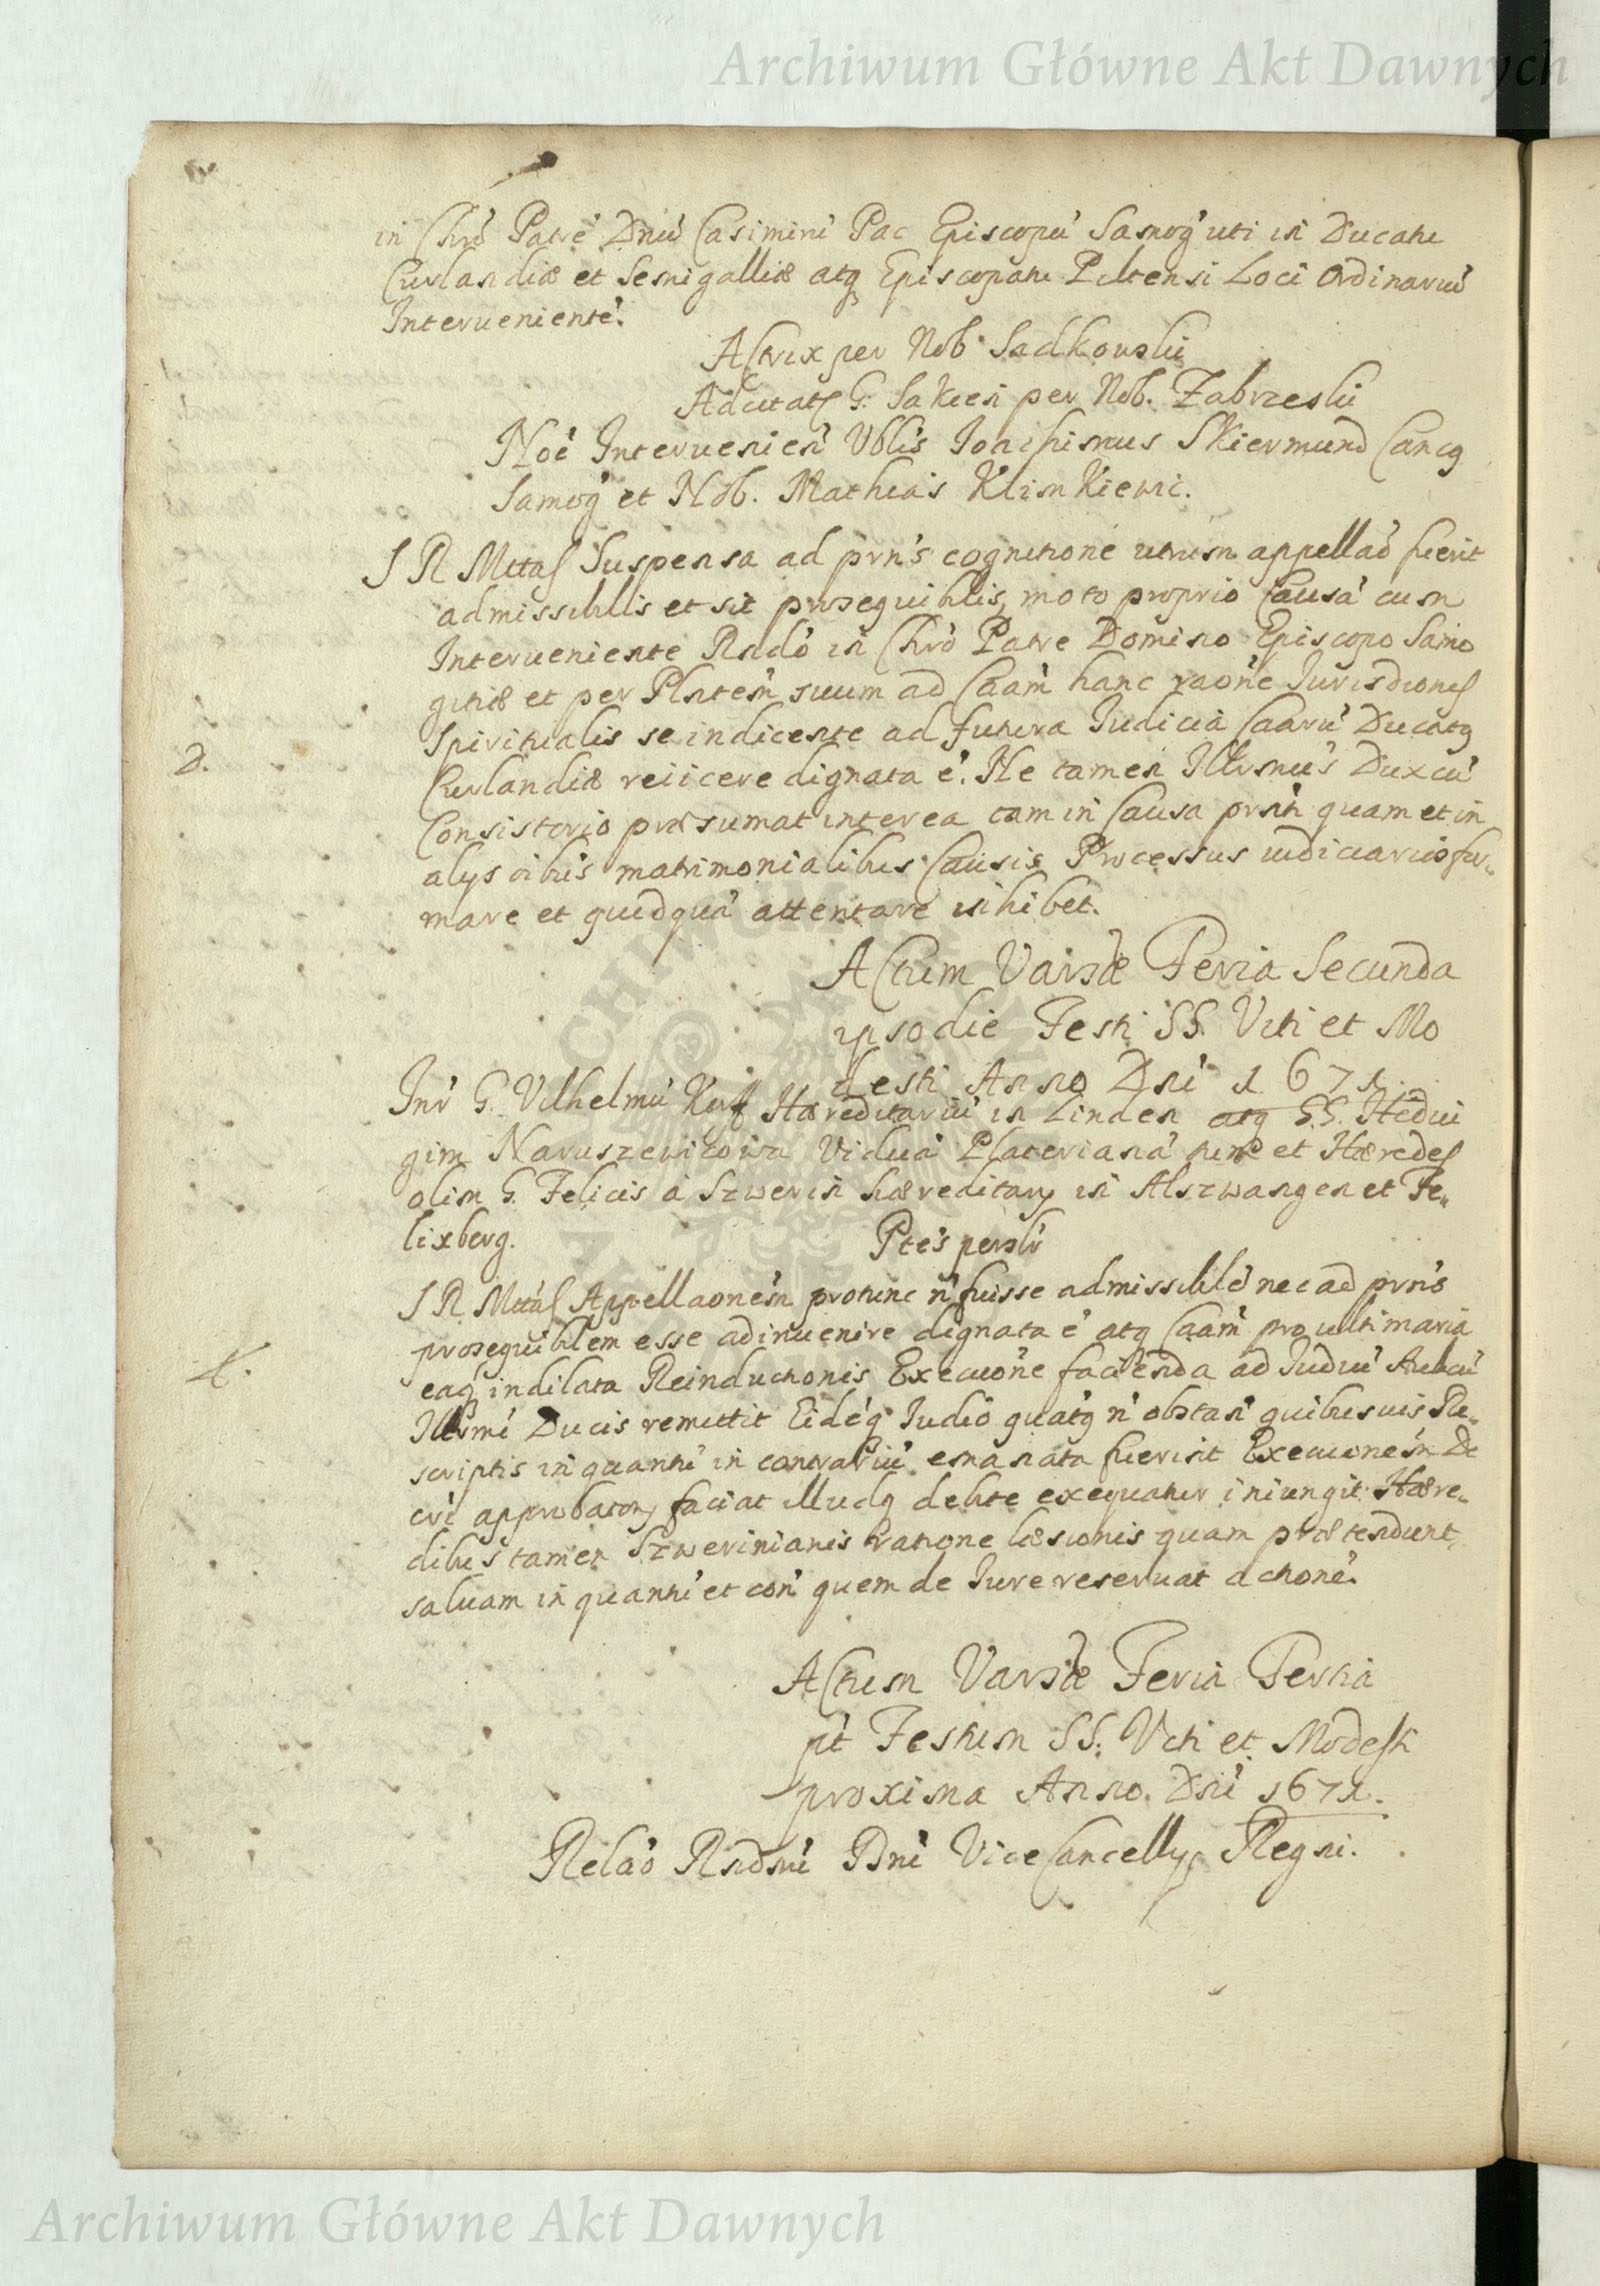 Archiwum Główne Akt Dawnych
in Chrō Patrē Dnū Casimirū Pac Episcopū Samog uti in Ducatu
Curlandiæ et Semigalliæ atq Episcopatu Piltensi Loci Ordinariū
Intervenientē.
Actrix per Nob Sadkowski
Adcitatq G: Sakien per Nob. Zabrzeski
Noē Intervenien Vblis Ioachimus Skiermund Cancq
Samog et Nob. Mathias Klimkiewic.
S R Mttas Suspensa ad prns cognitione utrum appellaō fuerit
admissibilis et sit prosequibilis, moto proprio Causā cum
Interveniente Rndō in Chrō Patre Domino Episcopo Samo
gitiæ et per Plntem suum ad Caam hanc raōne Iurisdiones
Spiritualis se indicente ad futura Iudicia Caarū Ducatq
D.
Curlandiæ reiicere dignata ē. Ne tamen Illrsmus Dux cū
Consistorio præsumat interea tam in Causa prsti quam et in
alys oibus matrimonialibus Causis Processus iudiciarios for„
mare et quidquā attentare inhibet.
Actum Varsæ Feria Secunda
ipso die Festi SS. Viti et Mo
desti Anno Dni 1671.
Inr G. Vilhelmū Korff Hæreditariū in Linden atq G.G. Hedui
gim Naruszewicowa Viduā Platerianā tum et Hæredes
olim G. Felicis à Szwerin hæreditary in Alszwangen et Fe„
lixberg.
Ptes perslr
S R Mttas Appellaonem protunc n fuisse admissibilē nec ad prns
prosequiblem esse adinvenire dignata ē atq Caam pro ultimaria
eaq indilata Reinductionis Execuōne facienda ad Iudiū Aulicū
Illrsmi Ducis remittit Eidēq Iudiō quatq n obstan quibusuis Re„
scriptis in quantū in contrariū emanata fuerint Execuonem De
cri approbatory faciat illudq debite exequatur iniungit. Hære„
dibus tamen Szwerinianis ratione læsionis quam prætendunt,
salvam in quantū et con quem de Iure reservat actionē.
Actum Varsæ Feria Tertia
pt Festum SS. Viti et Modesti
proxima Anno. Dni 1671.
Relaō Rndmi Dni Vice Cancelly Regni.
Archiwum Główne Akt Dawnych